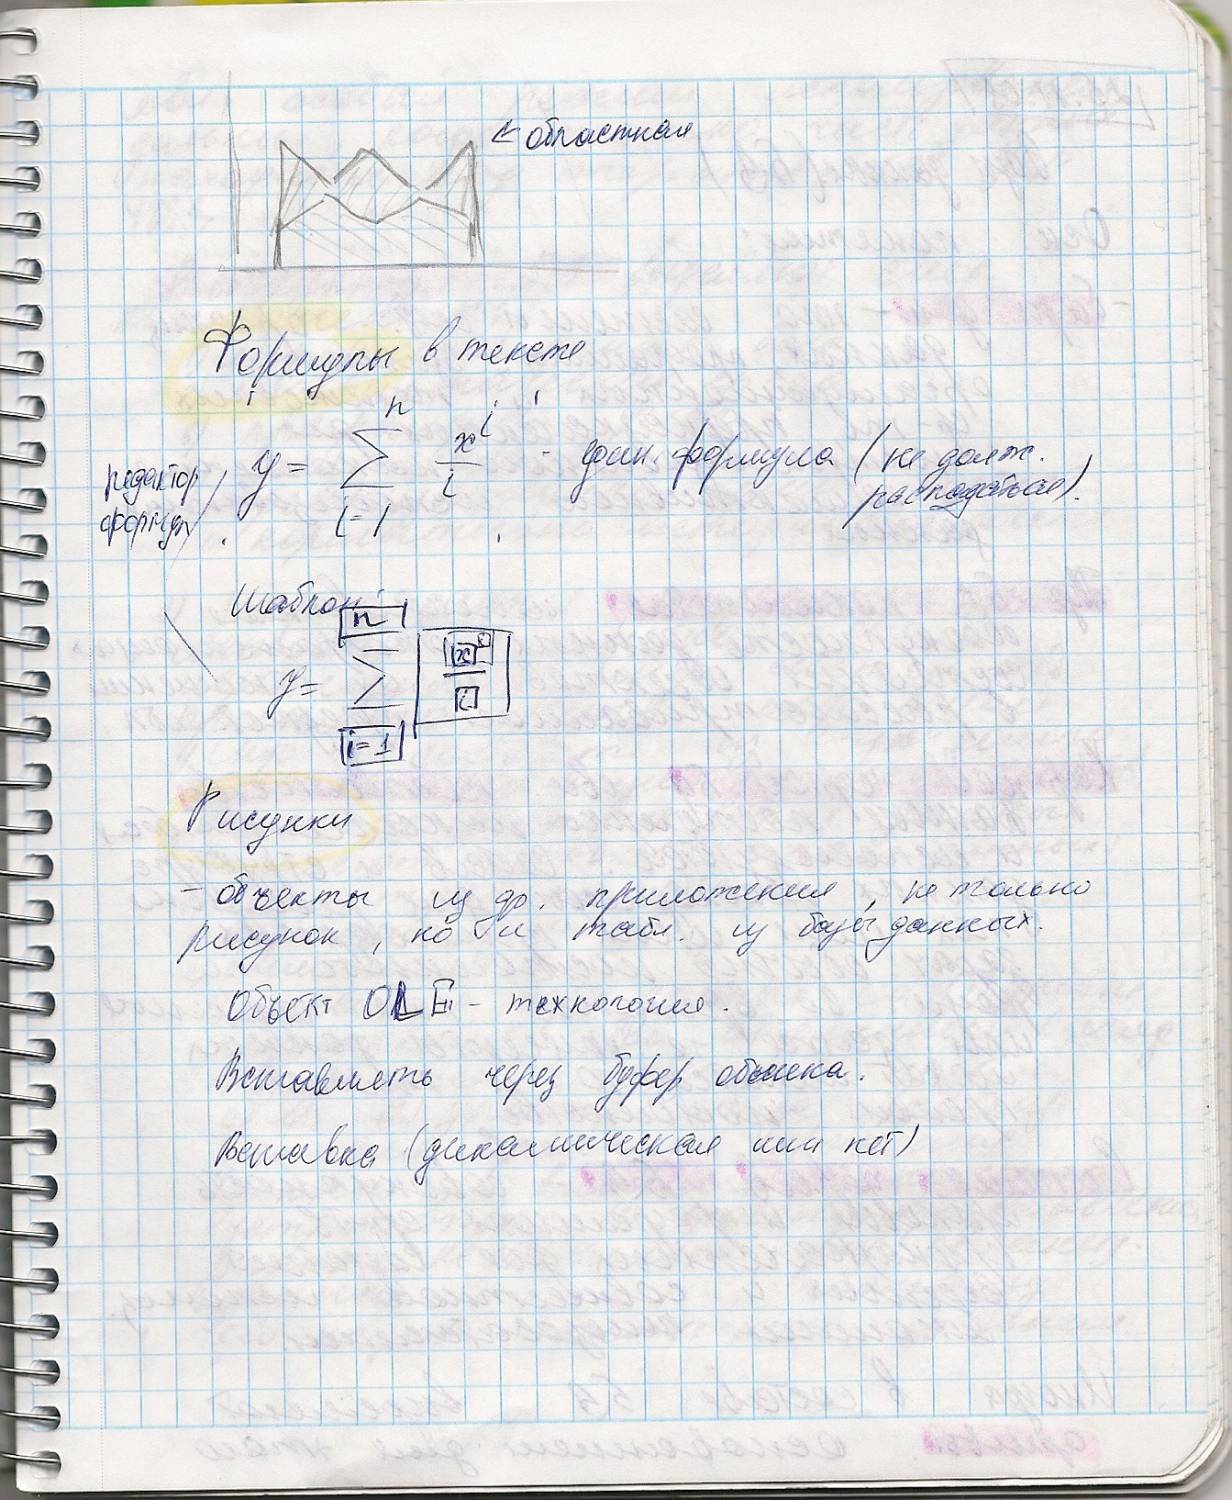 ← областная
Формулы в тексте
y = n ∑ i=1 x^i / i - един. формула (не долж.
распадаться).
редактор
формул
Шаблон:
y = n ∑ i=1 x^i / i
Рисунки
- объекты из др. приложения, не только
рисунок, но и табл. из базы данных.
Объект OLE - технология.
Вставлять через буфер обмена.
Вставка (динамическая или нет)